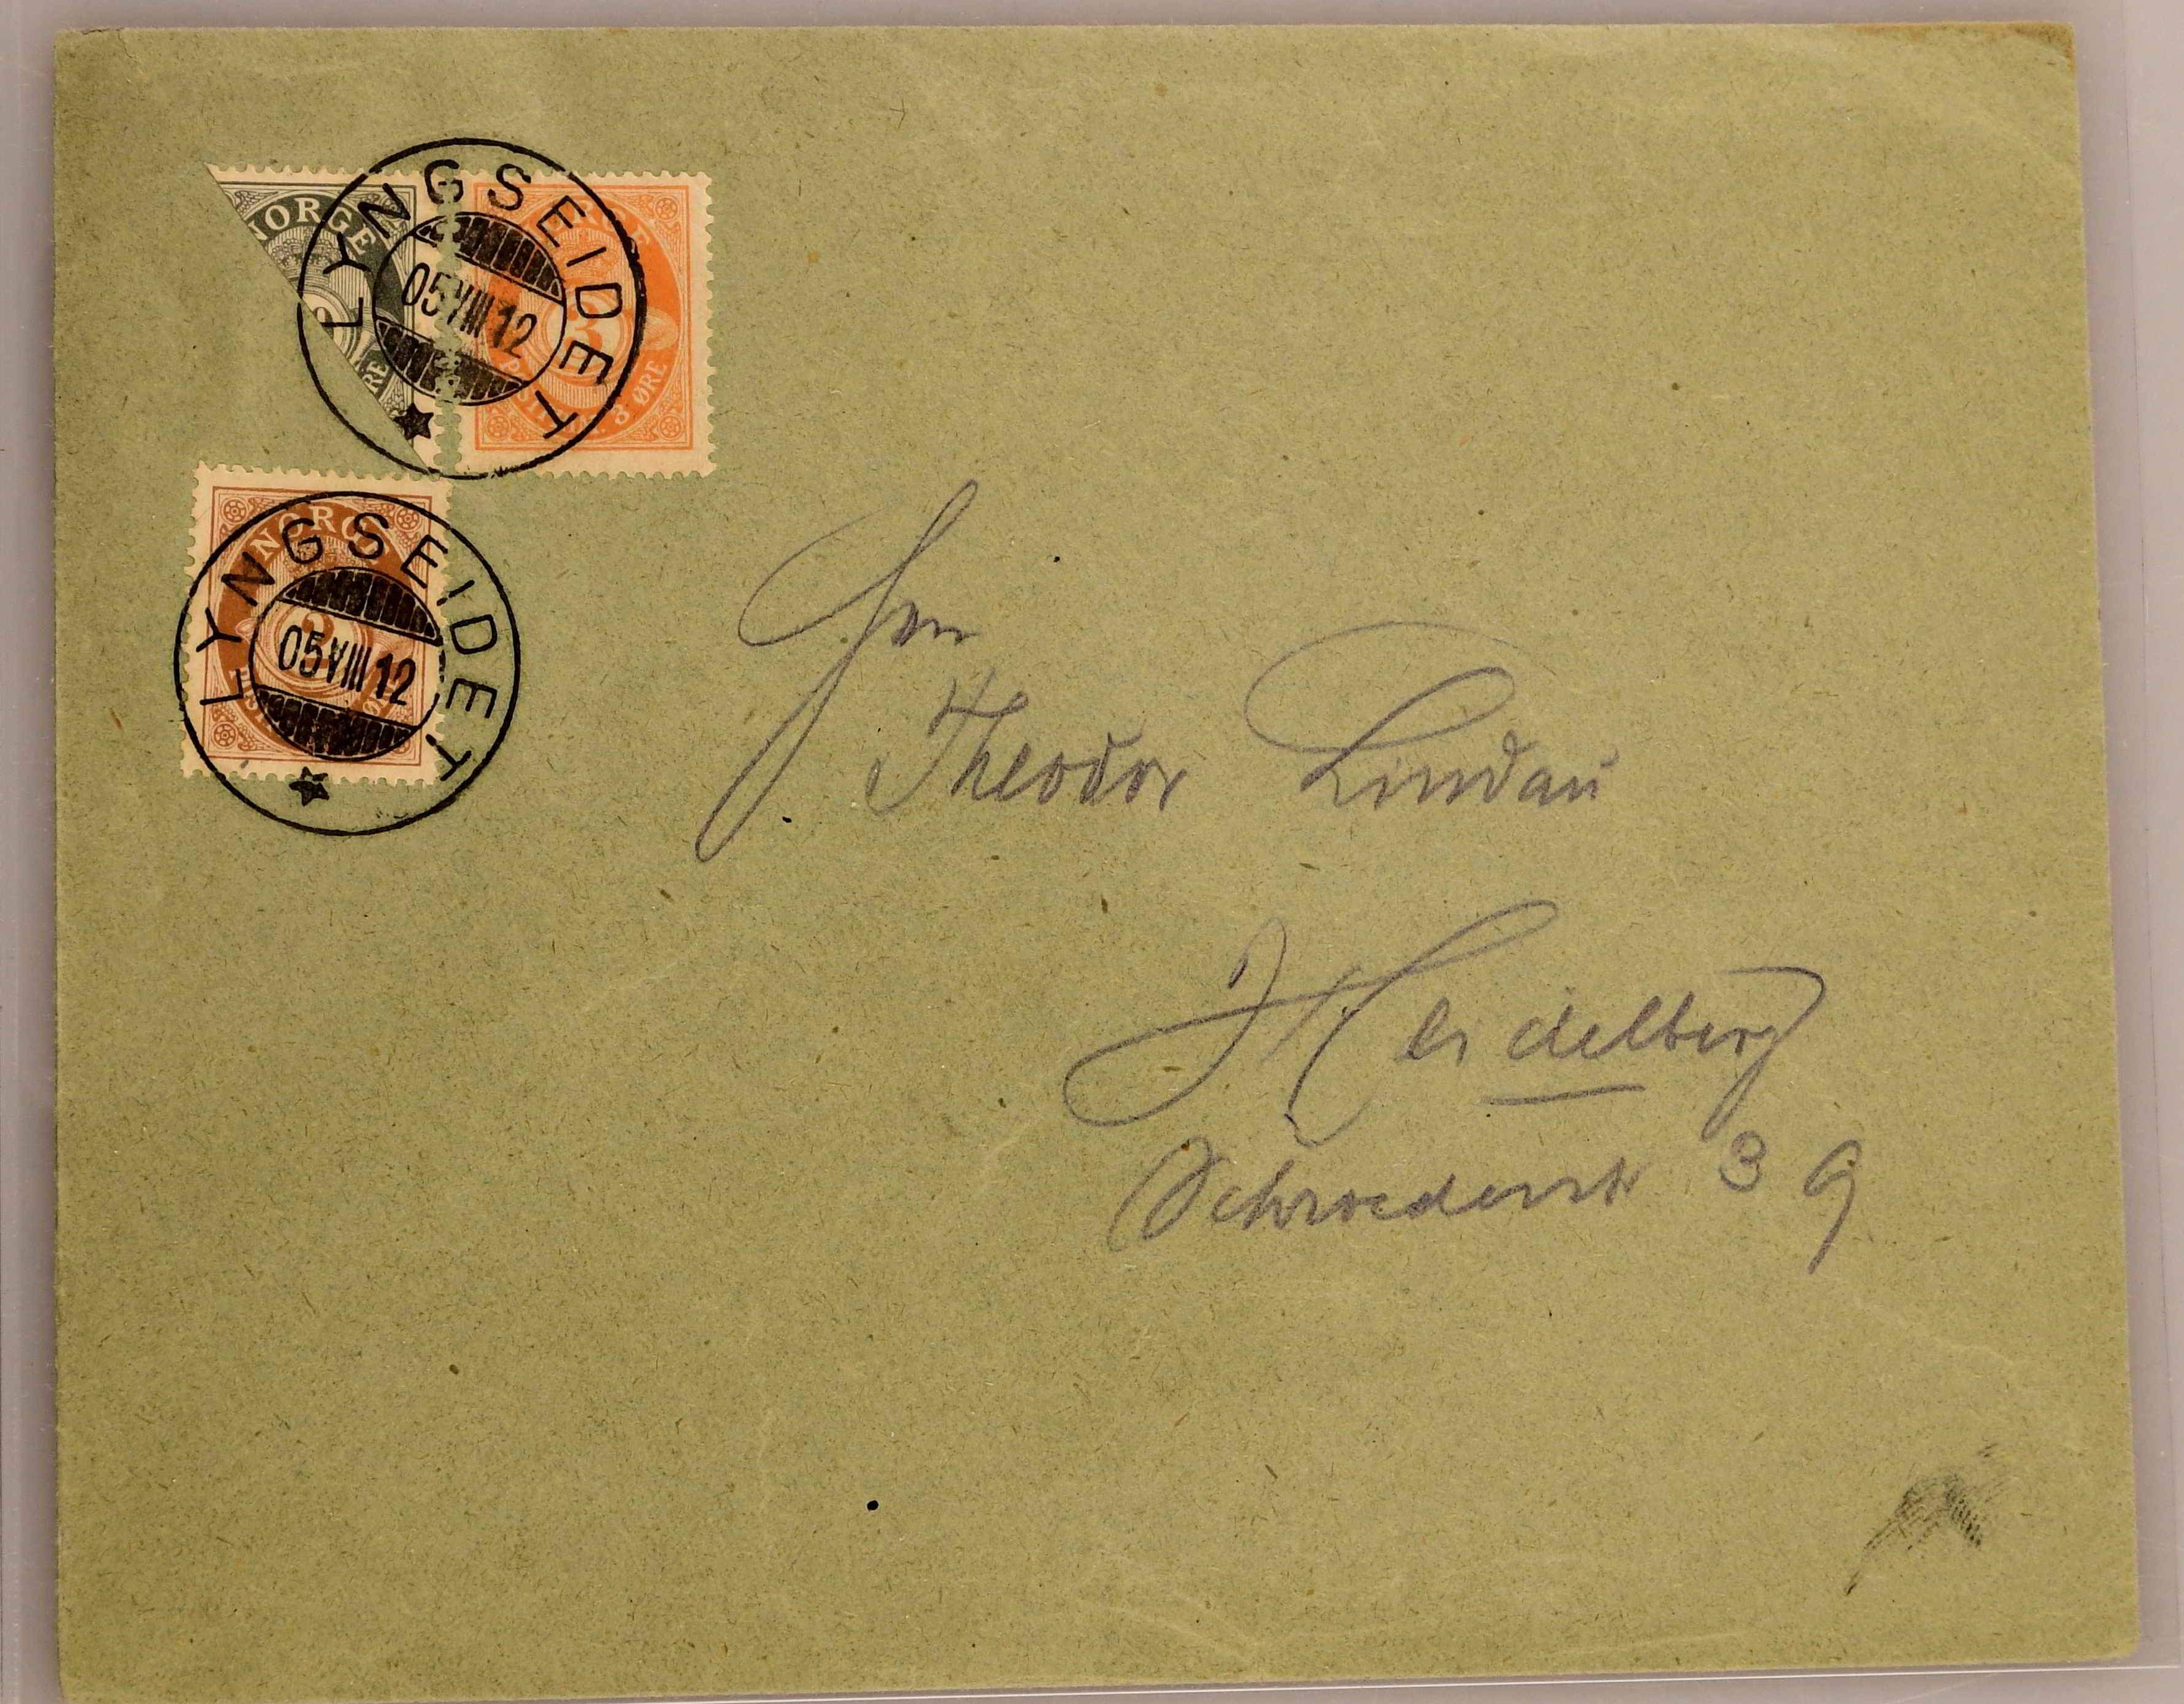 NORGE
ØRE
LYNGSEIDET
05 VIII 12
3
3 ØRE
NORG
LYNGSEIDET
05 VIII 12
Herrn
Theodor Lindau
Heidelberg
Schroederstr 39